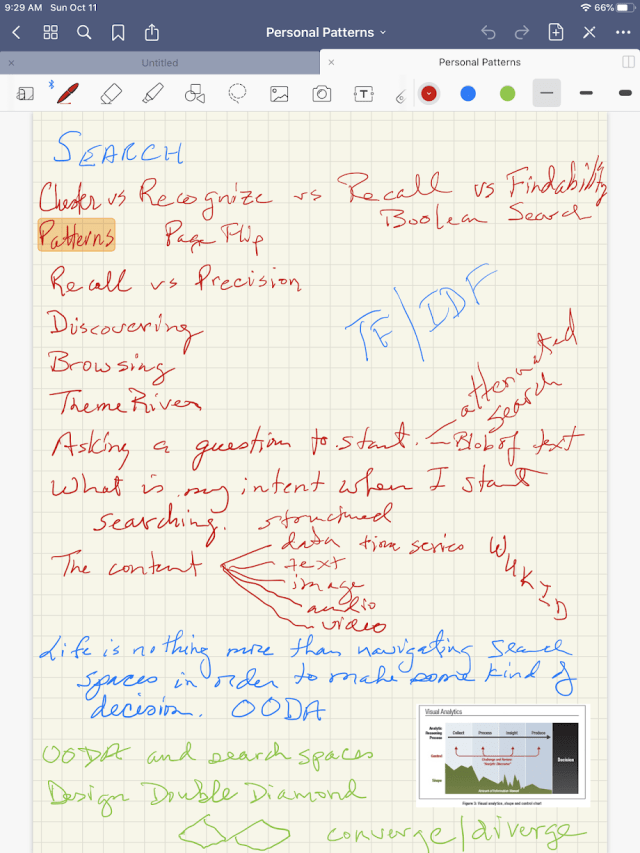 9:29 AM Sun Oct 11
66%
Personal Patterns
Untitled
Personal Patterns
SEARCH
vs Recognize vs Recall vs Findability
Patterns Page Flip Boolean Search
Recall vs Precision
TF/IDF
Discovering
Browsing
ThemeRiver
Asking a question to start. — Blob of text
search
What is my intent when I start
searching. structured
The content data time series
text
image
audio
video
Life is nothing more than navigating search
spaces in order to make some kind of
decision. OODA
OODA and search spaces
Design Double Diamond
converge/diverge
Visual Analytics
Analytic Reasoning Process
Collect Process Insight Produce
Control
Decision
Shape
Figure 5. Visual analytics, shape and control chart